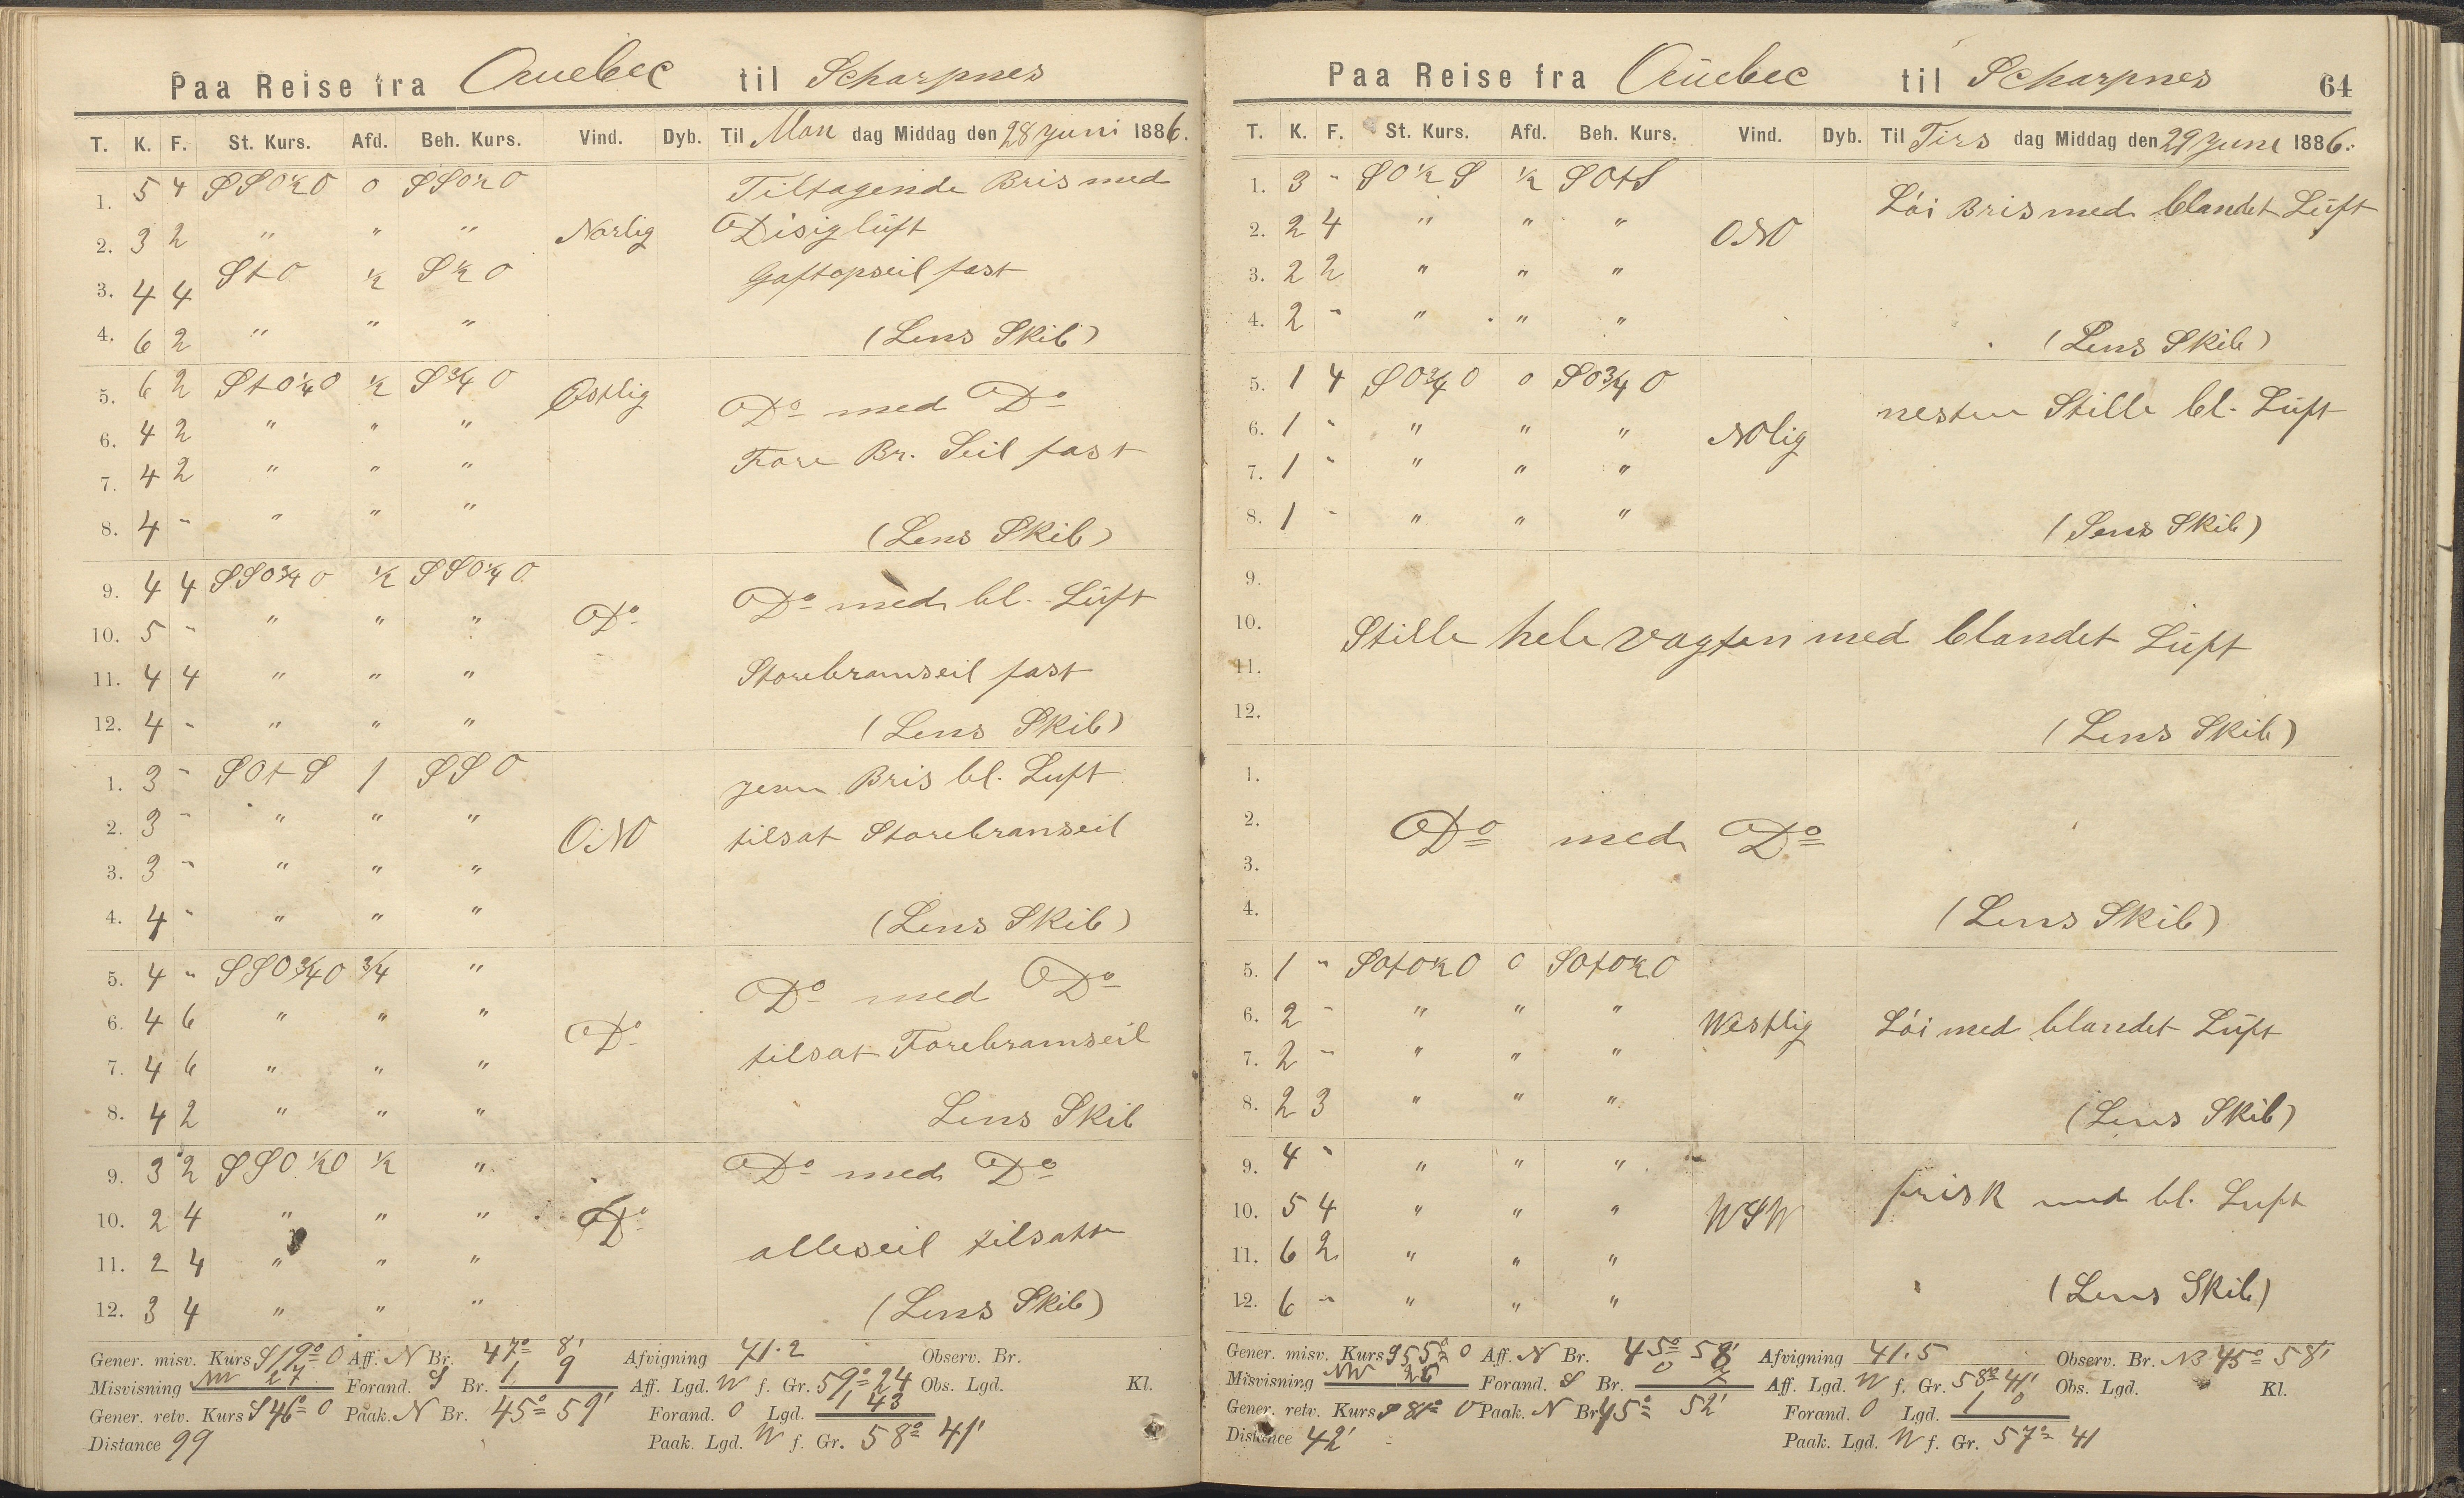 Paa Reise fra Quebec til Scharpnes
T. K. F. St. Kurs. Afd. Beh. Kurs. Vind. Dyb. Til Man dag Middag den 28 juni 1886.
1. 5 4 SSO½O 0 SSO½O Tiltagende Bris med
2. 3 2 " " " Norlig Disig lúft
3. 4 4 StO ½ S½O Gaftopseil fast
4. 6 2 " " " (Lens Skib)
5. 6 2 StO¼O ½ S¾O Ostlig Do med Do
6. 4 2 " " " Fore Br. Seil fast
7. 4 2 " " "
8. 4 - " " " (Lens Skib)
9. 4 4 SSO¾O ½ SSO¼O Do med bl. Lúft
10. 5 - " " " Do
11. 4 4 " " " Storebramseil fast
12. 4 - " " " (Lens Skib)
1. 3 - SOtS 1 SSO jevn Bris bl. Luft
2. 3 - " " " ONO tilsat Storebramseil
3. 3 - " " "
4. 4 - " " " (Lens Skib)
5. 4 - SSO¾O ¾ " Do med Do
6. 4 6 " " " Do tilsat Forebramseil
7. 4 6 " " "
8. 4 2 " " " Lens Skib
9. 3 2 SSO½O ½ " Do med Do
10. 2 4 " " " Do
11. 2 4 " " " alleseil tilsatte
12. 3 4 " " " (Lens Skib)
Gener. misv. Kurs S19°O Aff. N Br. 47° 8' Afvigning 71.2 Observ. Br.
Misvisning NW 27 Forand. S Br. 1 9 Aff. Lgd. W f. Gr. 59° 24 Obs. Lgd. Kl.
Gener. retv. Kurs S46°O Paak. N Br. 45° 59' Forand. O Lgd. 1 43
Distance 99 Paak. Lgd. W f. Gr. 58° 41'
Paa Reise fra Qúebec til Scharpnes 64
T. K. F. St. Kurs. Afd. Beh. Kurs. Vind. Dyb. Til Tirs dag Middag den 29 juni 1886.
1. 3 - SO½S ½ SOtS Löi Bris med blandet Lúft
2. 2 4 " " " ONO
3. 2 2 " " "
4. 2 - " " " (Lens Skib)
5. 1 4 SO¾O 0 SO¾O nesten Stille bl. Lúft
6. 1 - " " " NOlig
7. 1 - " " "
8. 1 - " " " (Lens Skib)
9.
10. Stille hele vagten med blandet Lúft
11.
12. (Lens Skib)
1.
2. Do med Do
3.
4. (Lens Skib)
5. 1 - SOtO½O 0 SOtO½O
6. 2 - " " " Westlig Löi med blandet Lúft
7. 2 - " " "
8. 2 3 " " " (Lens Skib)
9. 4 - " " "
10. 5 4 " " " WSW frisk med bl. Luft
11. 6 2 " " "
12. 6 - " " " (Lens Skib)
Gener. misv. Kurs S55°O Aff. N Br. 45° 58' Afvigning 41.5 Observ. Br. NB 45° 58'
Misvisning NW 26 Forand. S Br. 0 Aff. Lgd. W f. Gr. 58° 41' Obs. Lgd. Kl.
Gener. retv. Kurs S 81° O Paak. N Br. 45° 52' Forand. O Lgd. 1 0
Distance 42' Paak. Lgd. W f. Gr. 57° 41